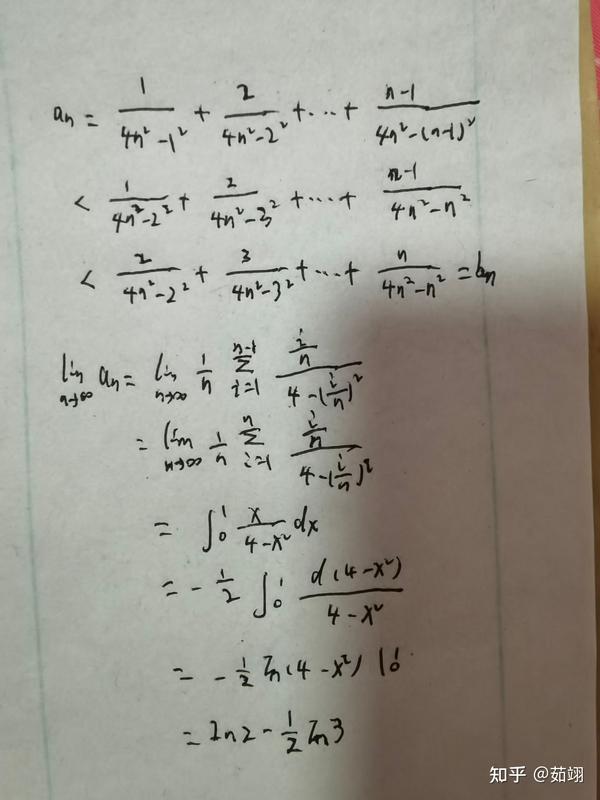 aₙ = 1/(4n²-1²) + 2/(4n²-2²) + ... + (n-1)/(4n²-(n-1)²)
< 1/(4n²-2²) + 2/(4n²-3²) + ... + (n-1)/(4n²-n²)
< 2/(4n²-2²) + 3/(4n²-3²) + ... + n/(4n²-n²) = bₙ
lim_{n→∞} aₙ = lim_{n→∞} 1/n ∑_{i=1}^{n-1} (i/n)/(4-(i/n)²)
= lim_{n→∞} 1/n ∑_{i=1}^{n} (i/n)/(4-(i/n)²)
= ∫₀¹ x/(4-x²) dx
= -1/2 ∫₀¹ d(4-x²)/(4-x²)
= -1/2 ln(4-x²) |₀¹
= ln2 - 1/2 ln3
知乎 @茹翊